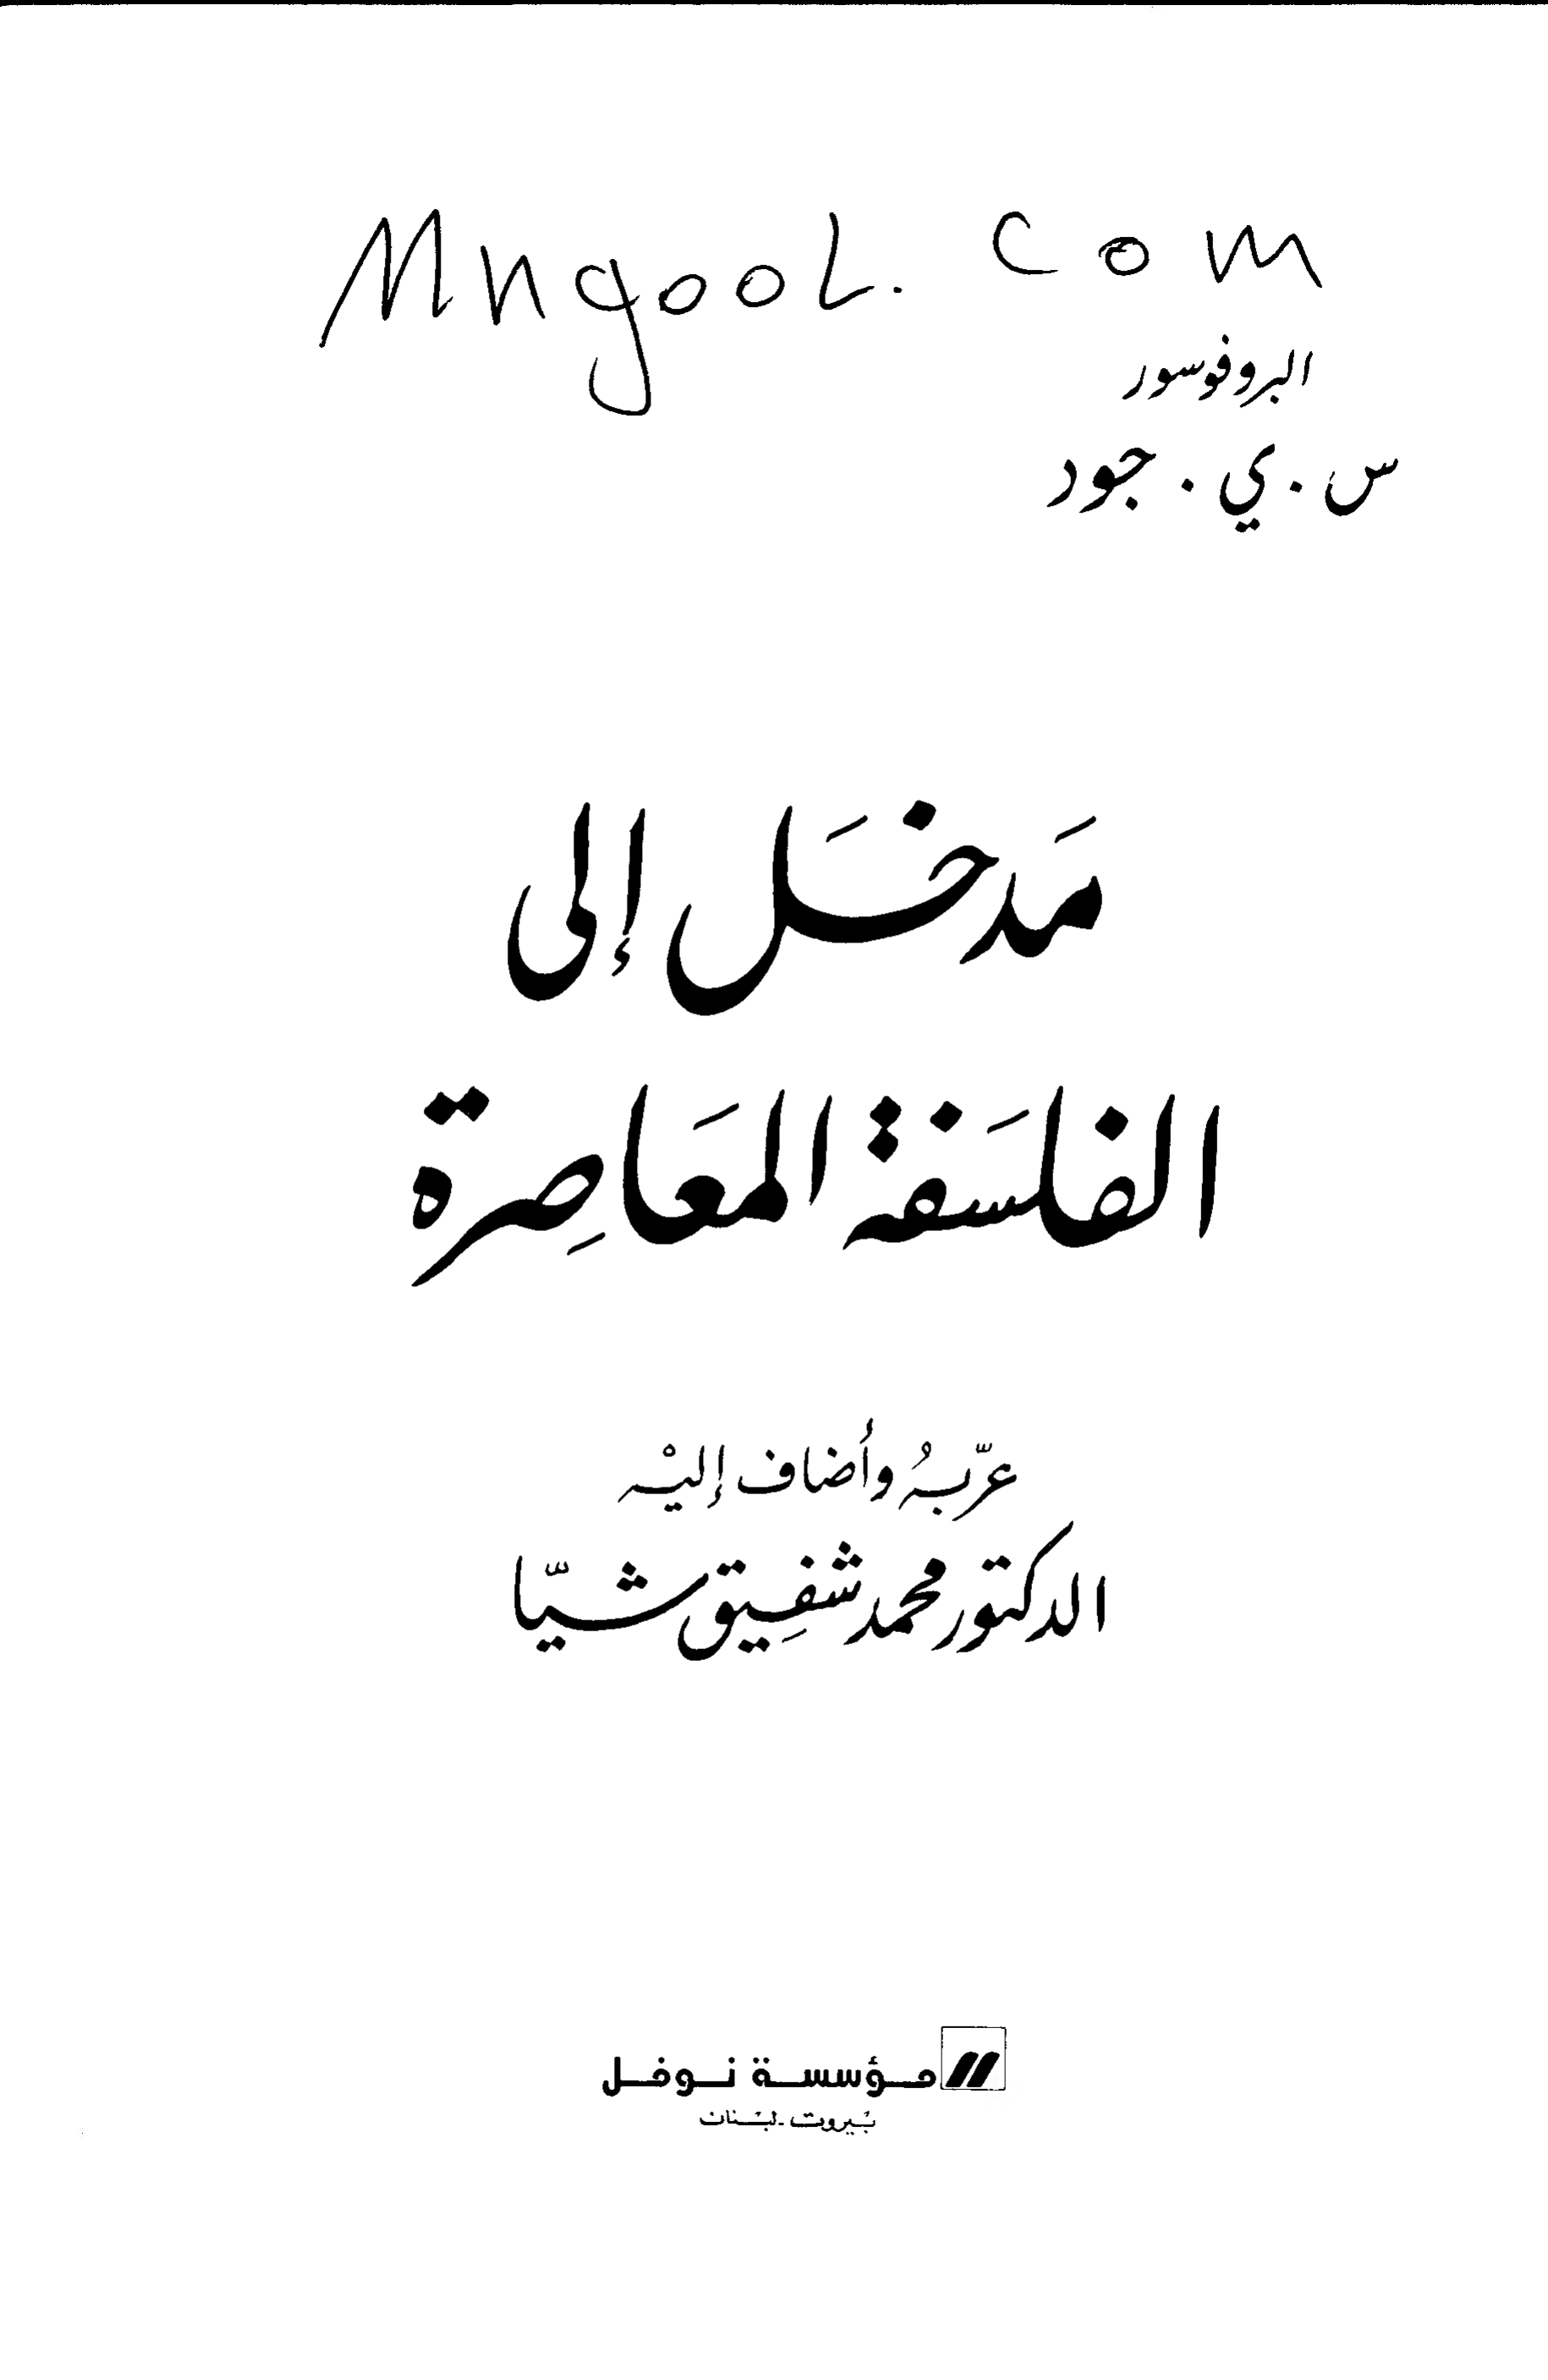 Mngool. com
البروفوسور
س.ي. جود
مَدخَل إلى
الفلسَفة المعَاصِرة
عرّبهُ وأضاف إليْه
الدكتور محمد شفِيق شيّا
مؤسسة نوفل
بَيروت - لبْنان